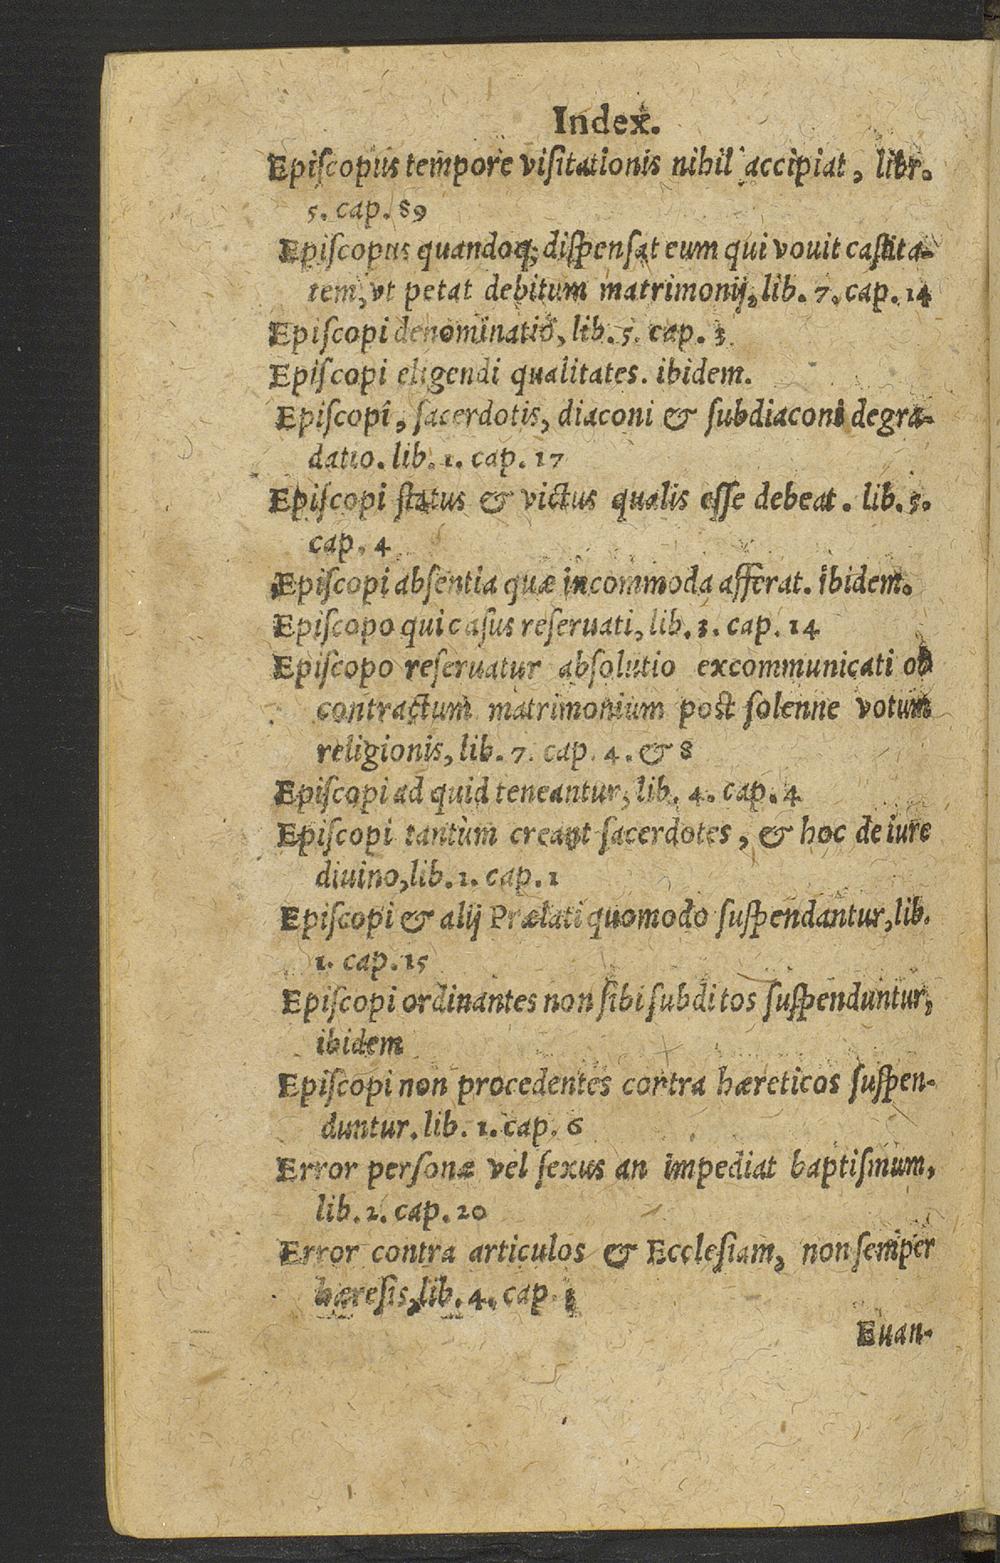 Index.
Epiſcopus tempore viſitationis nihil accipiat, libr.
5. cap. 89
Epiſcopus quandoq; diſpenſat eum qui vouit caſtita-
tem, vt petat debitum matrimonij, lib. 7. cap. 14
Epiſcopi denominatio, lib. 5. cap. 3.
Epiſcopi eligendi qualitates. ibidem.
Epiſcopi, ſacerdotis, diaconi & ſubdiaconi degra-
datio. lib. 1. cap. 17
Epiſcopi ſtatus & victus qualis eſſe debeat. lib. 5.
cap. 4
Epiſcopi abſentia quæ incommoda afferat. ibidem.
Epiſcopo qui caſus reſeruati, lib. 3. cap. 14
Epiſcopo reſeruatur abſolutio excommunicati ob
contractum matrimonium post ſolenne votum
religionis, lib. 7. cap. 4. & 8
Epiſcopi ad quid teneantur, lib. 4. cap. 4
Epiſcopi tantùm creant ſacerdotes, & hoc de iure
diuino, lib. 1. cap. 1
Epiſcopi & alij Prælati quomodo ſuſpendantur, lib.
1. cap. 15
Epiſcopi ordinantes non ſibi ſubditos ſuſpenduntur,
ibidem
Epiſcopi non procedentes contra hæreticos ſuſpen-
duntur. lib. 1. cap. 6
Error perſonæ vel ſexus an impediat baptiſmum,
lib. 2. cap. 20
Error contra articulos & Eccleſiam, non ſemper
hæreſis, lib. 4. cap. 3
Euan-